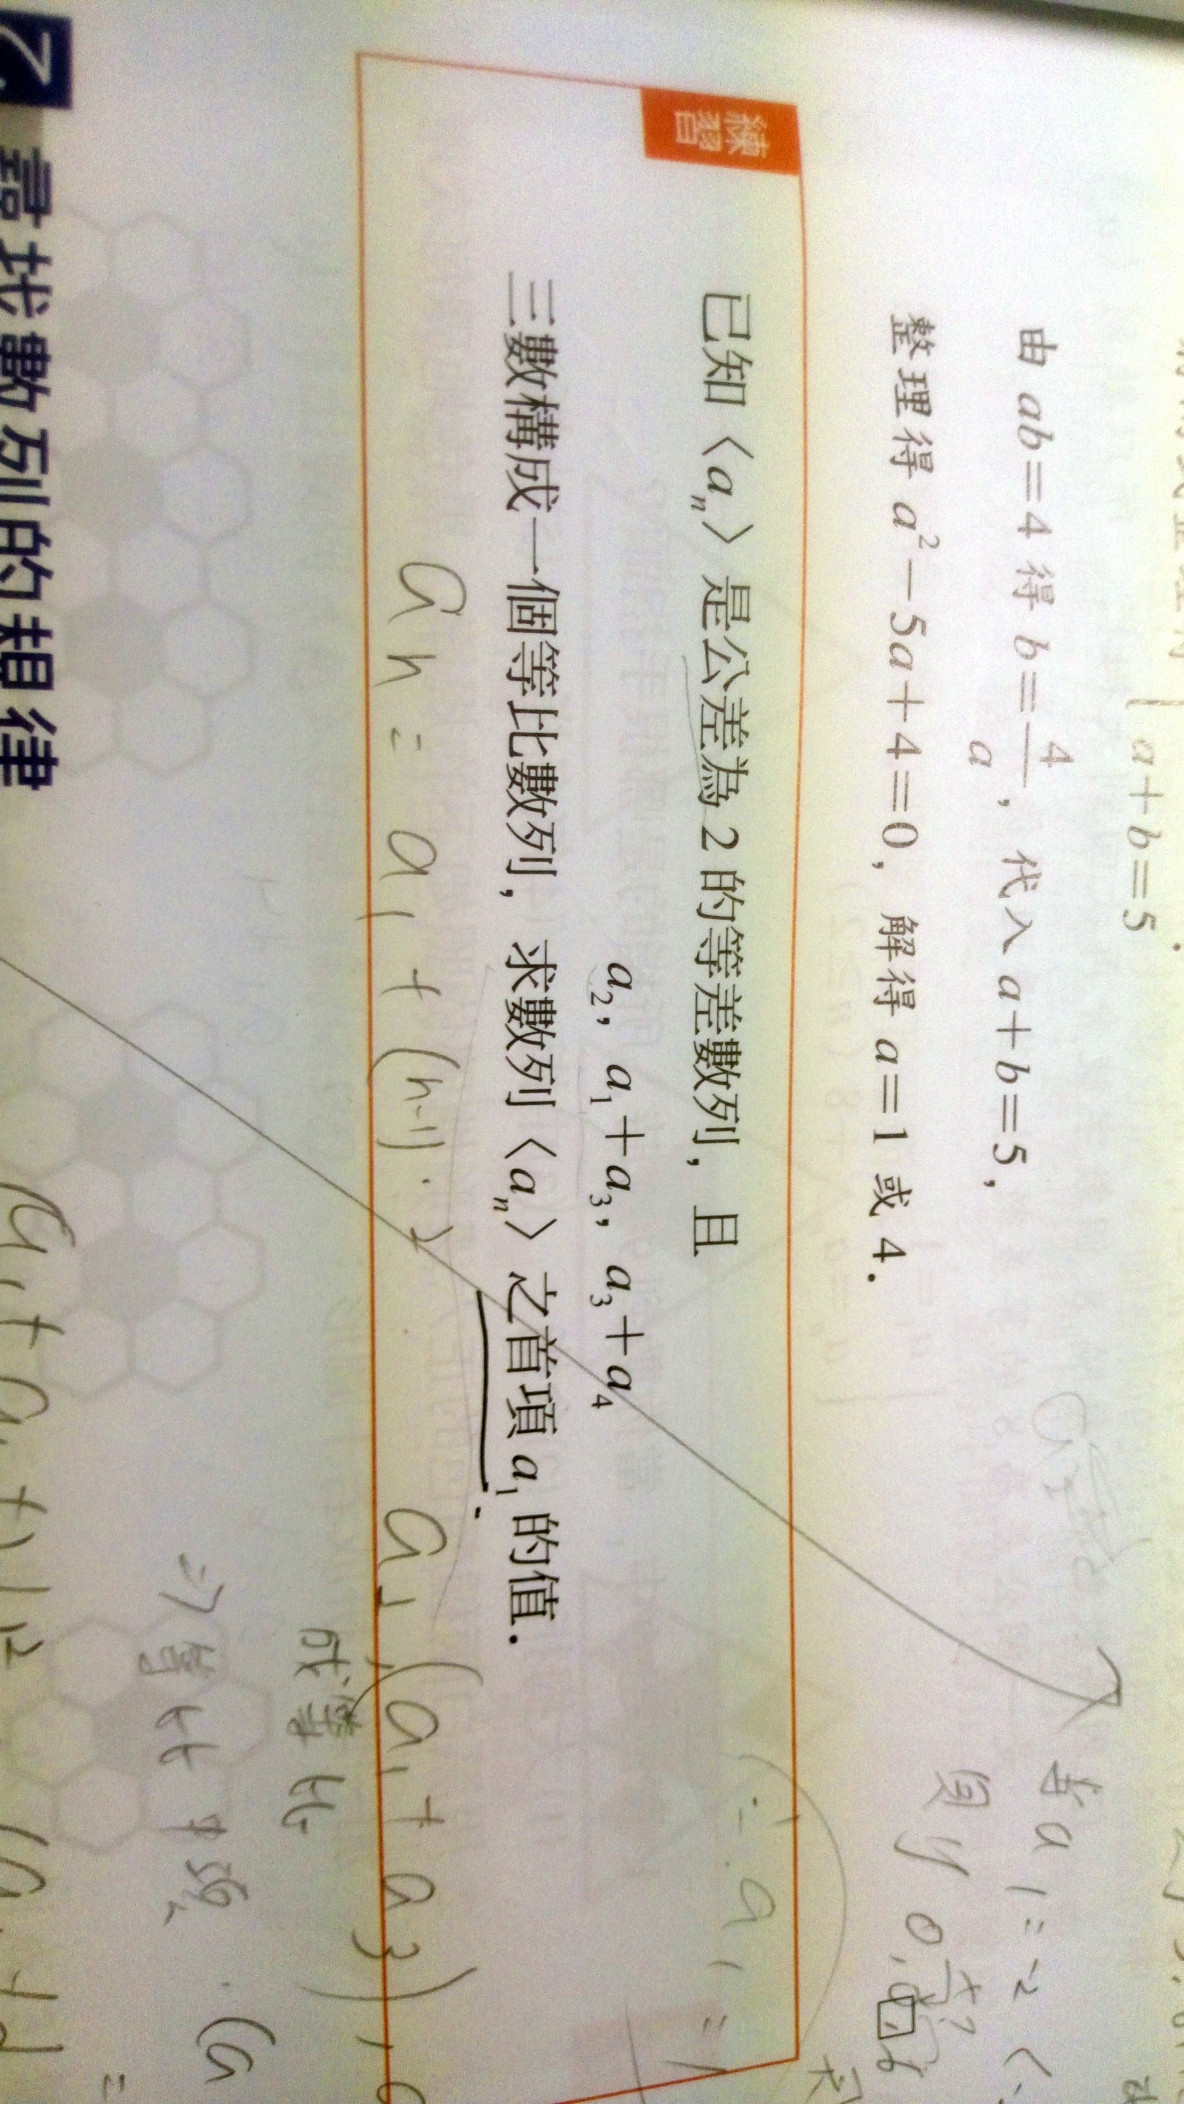 a+b=5
由 ab=4 得 b=4/a，代入 a+b=5，
整理得 a²-5a+4=0，解得 a=1 或 4．
練習
已知〈aₙ〉是公差為 2 的等差數列，且
a₂，a₁+a₃，a₃+a₄
三數構成一個等比數列，求數列〈aₙ〉之首項 a₁ 的值．
aₙ = a₁ + (n-1)·2
a₂, (a₁+a₃),
成等比
⇒等比中項
∴ a₁ = 1
若a₁=-2
則
7.
尋找數列的規律